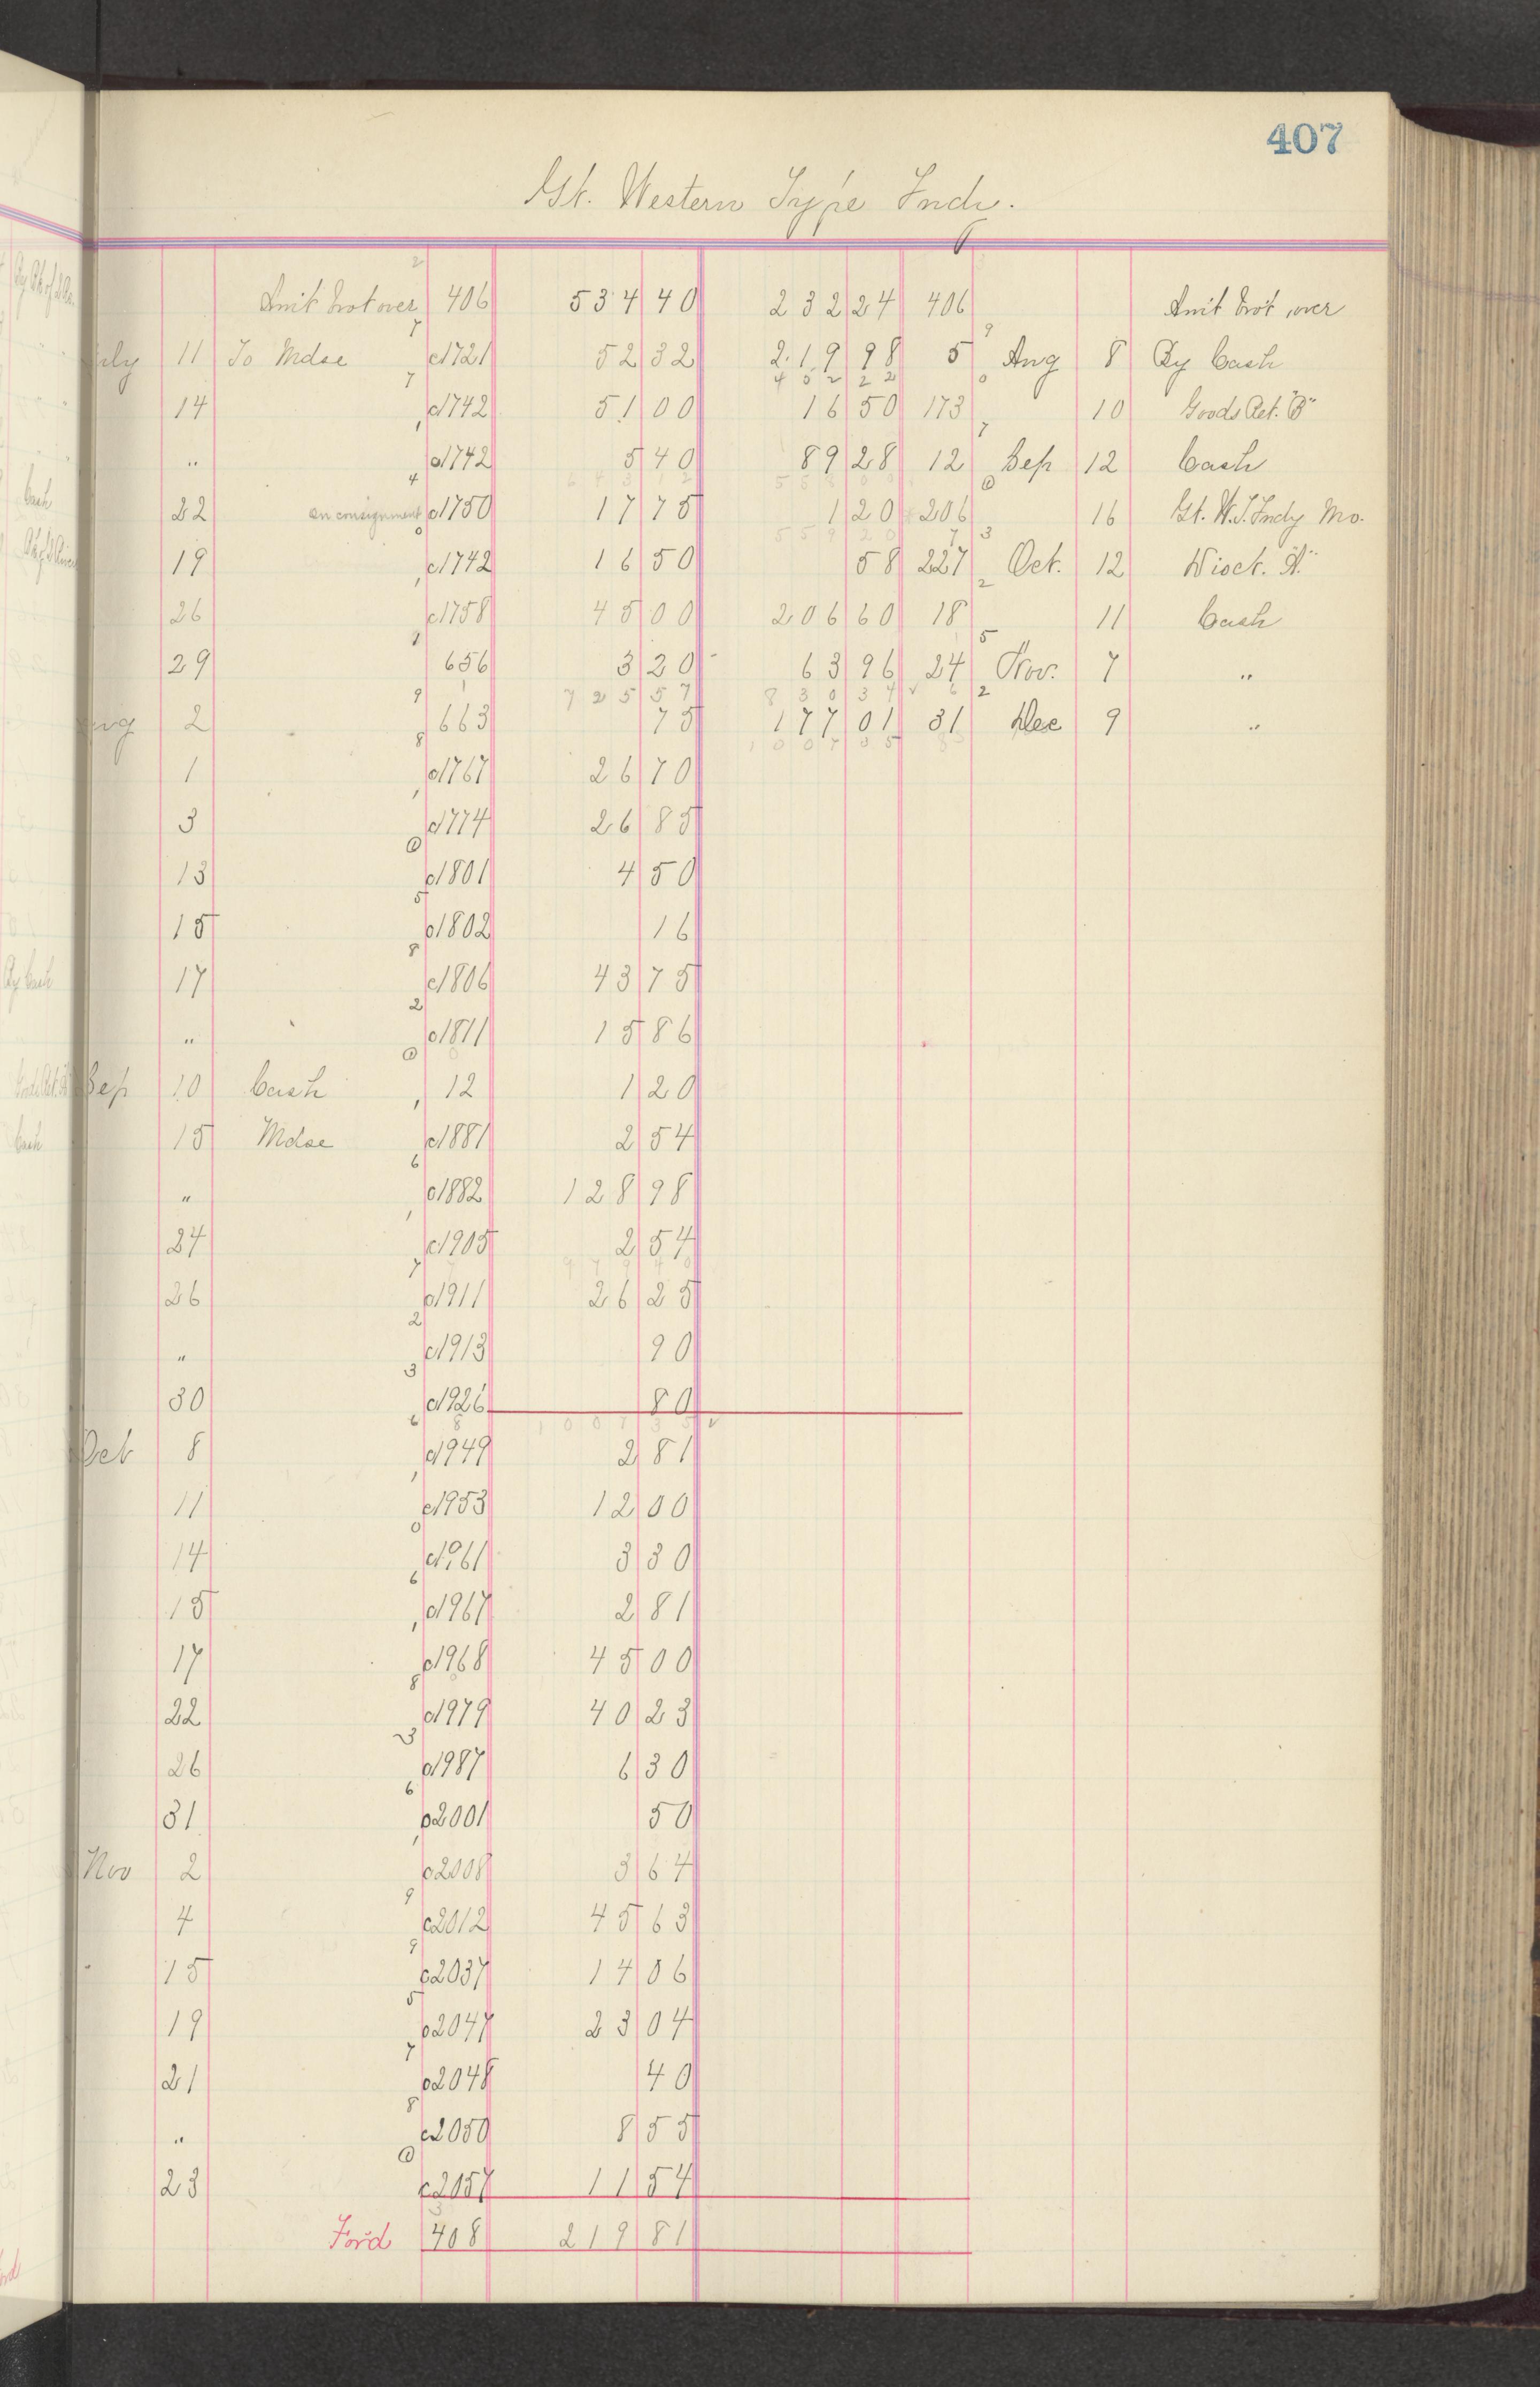 407
Gt. Western Type Fndy.
Amt brot over 406 534 40 232 24 406 Amt brot over
July 11 To Mdse c1721 52 32 219 98 5 Aug 8 By Cash
402 22
14 c1742 51 00 16 50 173 10 Goods Ret. "B"
" c1742 5 40 89 28 12 Sep 12 Cash
643 12
22 on consignment c1750 17 75 1 20 206 16 Gt. W. T. Fndy Mo.
559 20
19 c1742 16 50 58 227 Oct. 12 Disct. "A"
26 c1758 45 00 206 60 18 11 Cash
29 656 3 20 63 96 24 Nov. 7 "
725 57 830 34
Aug 2 663 75 177 01 31 Dec 9 "
1007 35
1 c1767 26 70
3 c1774 26 85
13 c1801 4 50
15 c1802 16
17 c1806 43 75
" c1811 15 86
Sep 10 Cash 12 1 20
15 Mdse c1881 2 54
" c1882 128 98
24 c1905 2 54
26 c1911 26 25
" c1913 90
30 c1926 80
1007 35
Oct 8 c1949 2 81
11 c1953 12 00
14 c1961 3 30
15 c1967 2 81
17 c1968 45 00
22 c1979 40 23
26 c1987 6 30
31 c2001 50
Nov 2 c2008 3 64
4 c2012 45 63
15 c2037 14 06
19 c2047 23 04
21 c2048 40
" c2050 8 55
23 c2057 11 54
Ford 408 219 81